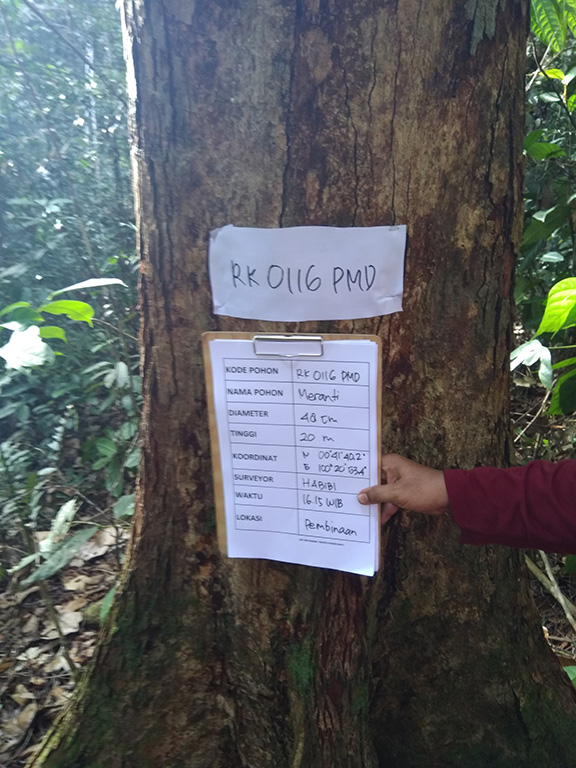 RK 0116 PMD
KODE POHON RK 0116 PMD
NAMA POHON Meranti
DIAMETER 48 cm
TINGGI 20 m
KOORDINAT N 00°41'40.2"
E 100°20'53.4"
SURVEYOR HABIBI
WAKTU 16.15 WIB
LOKASI Pembinaan